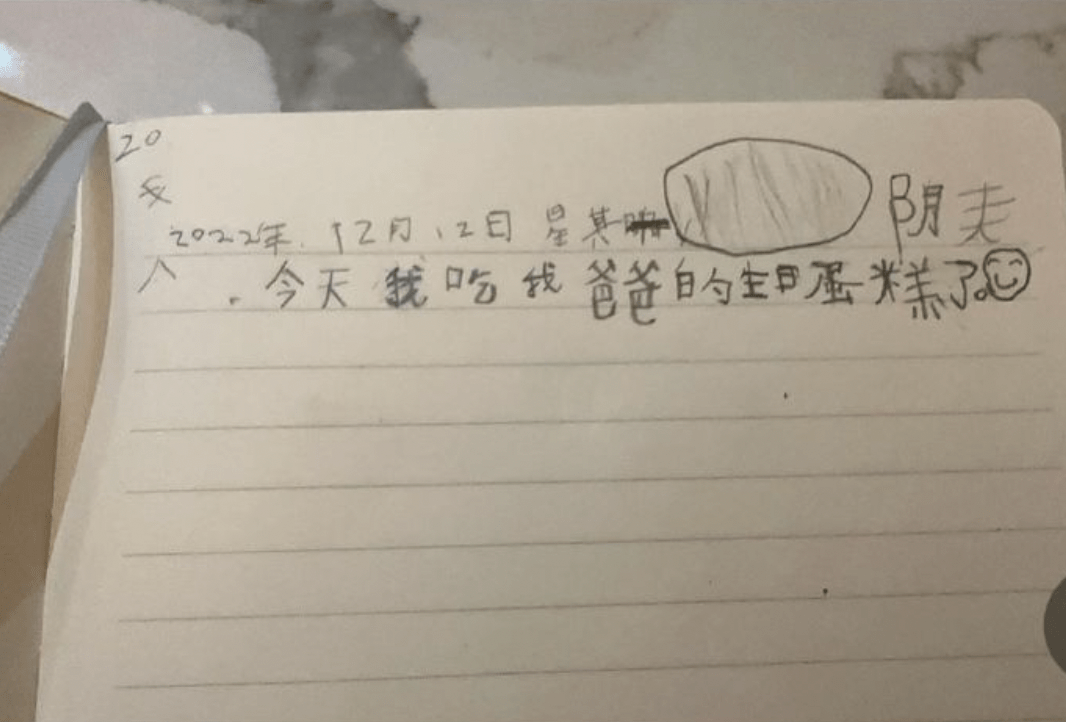 20
2022年12月12日 星其 阴夫
今天我吃我爸爸的生日蛋糕了。